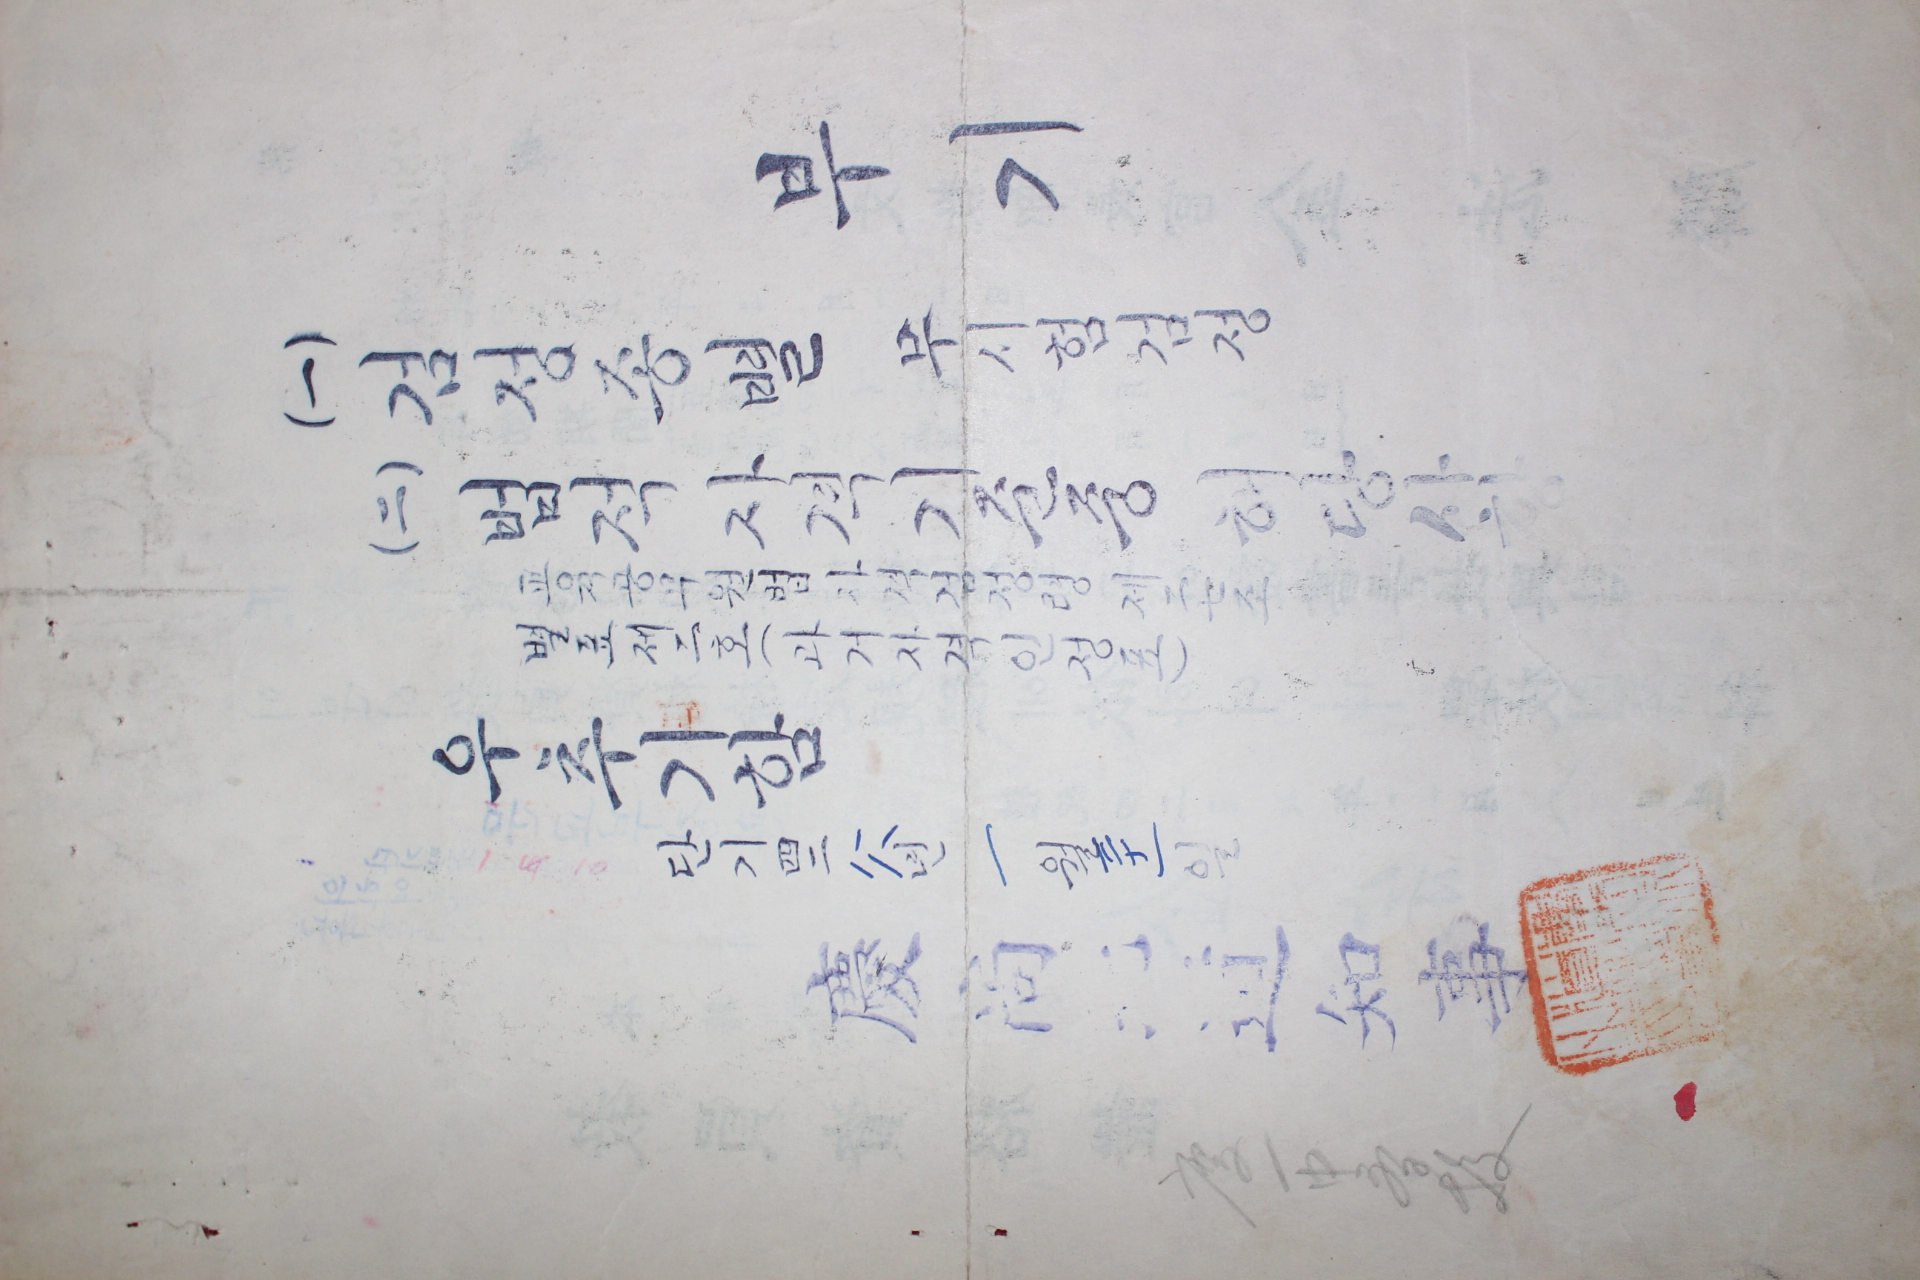 부기
(一) 검정종별 무시험검정
(二) 법적 자격기준중 해당사항
공무원법 자격검정령 제二조
별표제二호(과거자격인정표)
우추기함
단기四二八八년 一월三十一일
慶尚 道知事
慶一中学校